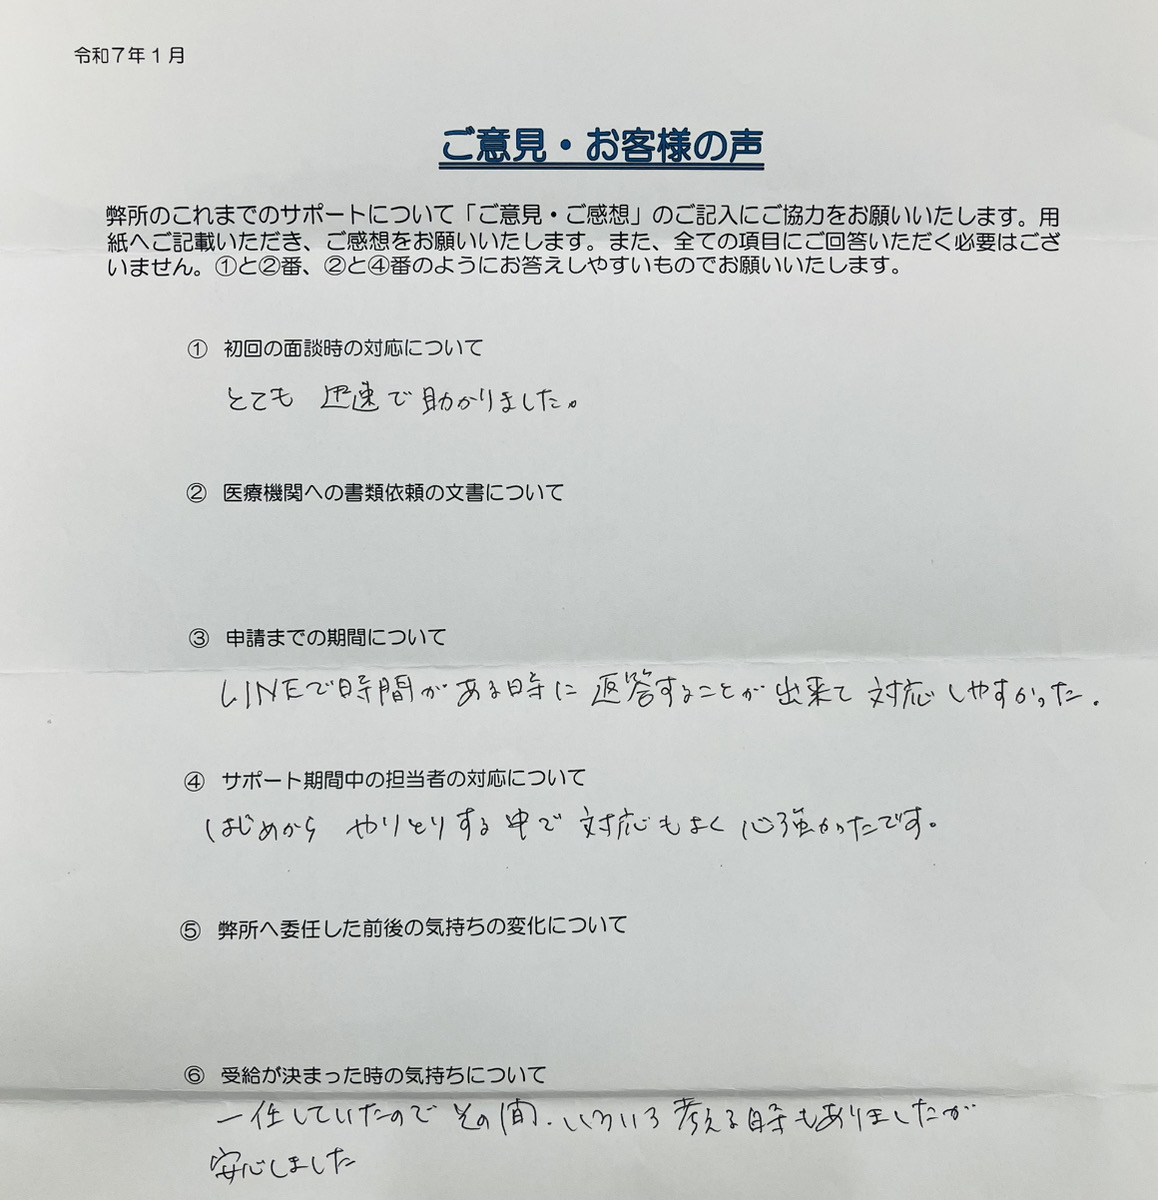 令和7年1月
ご意見・お客様の声
弊所のこれまでのサポートについて「ご意見・ご感想」のご記入にご協力をお願いいたします。用
紙へご記載いただき、ご感想をお願いいたします。また、全ての項目にご回答いただく必要はござ
いません。①と②番、②と④番のようにお答えしやすいものでお願いいたします。
① 初回の面談時の対応について
とても 迅速で助かりました。
② 医療機関への書類依頼の文書について
③ 申請までの期間について
LINEで時間がある時に返答することが出来て対応しやすかった.
④ サポート期間中の担当者の対応について
はじめから やりとりする中で対応もよく心強かったです。
⑤ 弊所へ委任した前後の気持ちの変化について
⑥ 受給が決まった時の気持ちについて
一任していたのでその間、いろいろ考える時もありましたが
安心しました